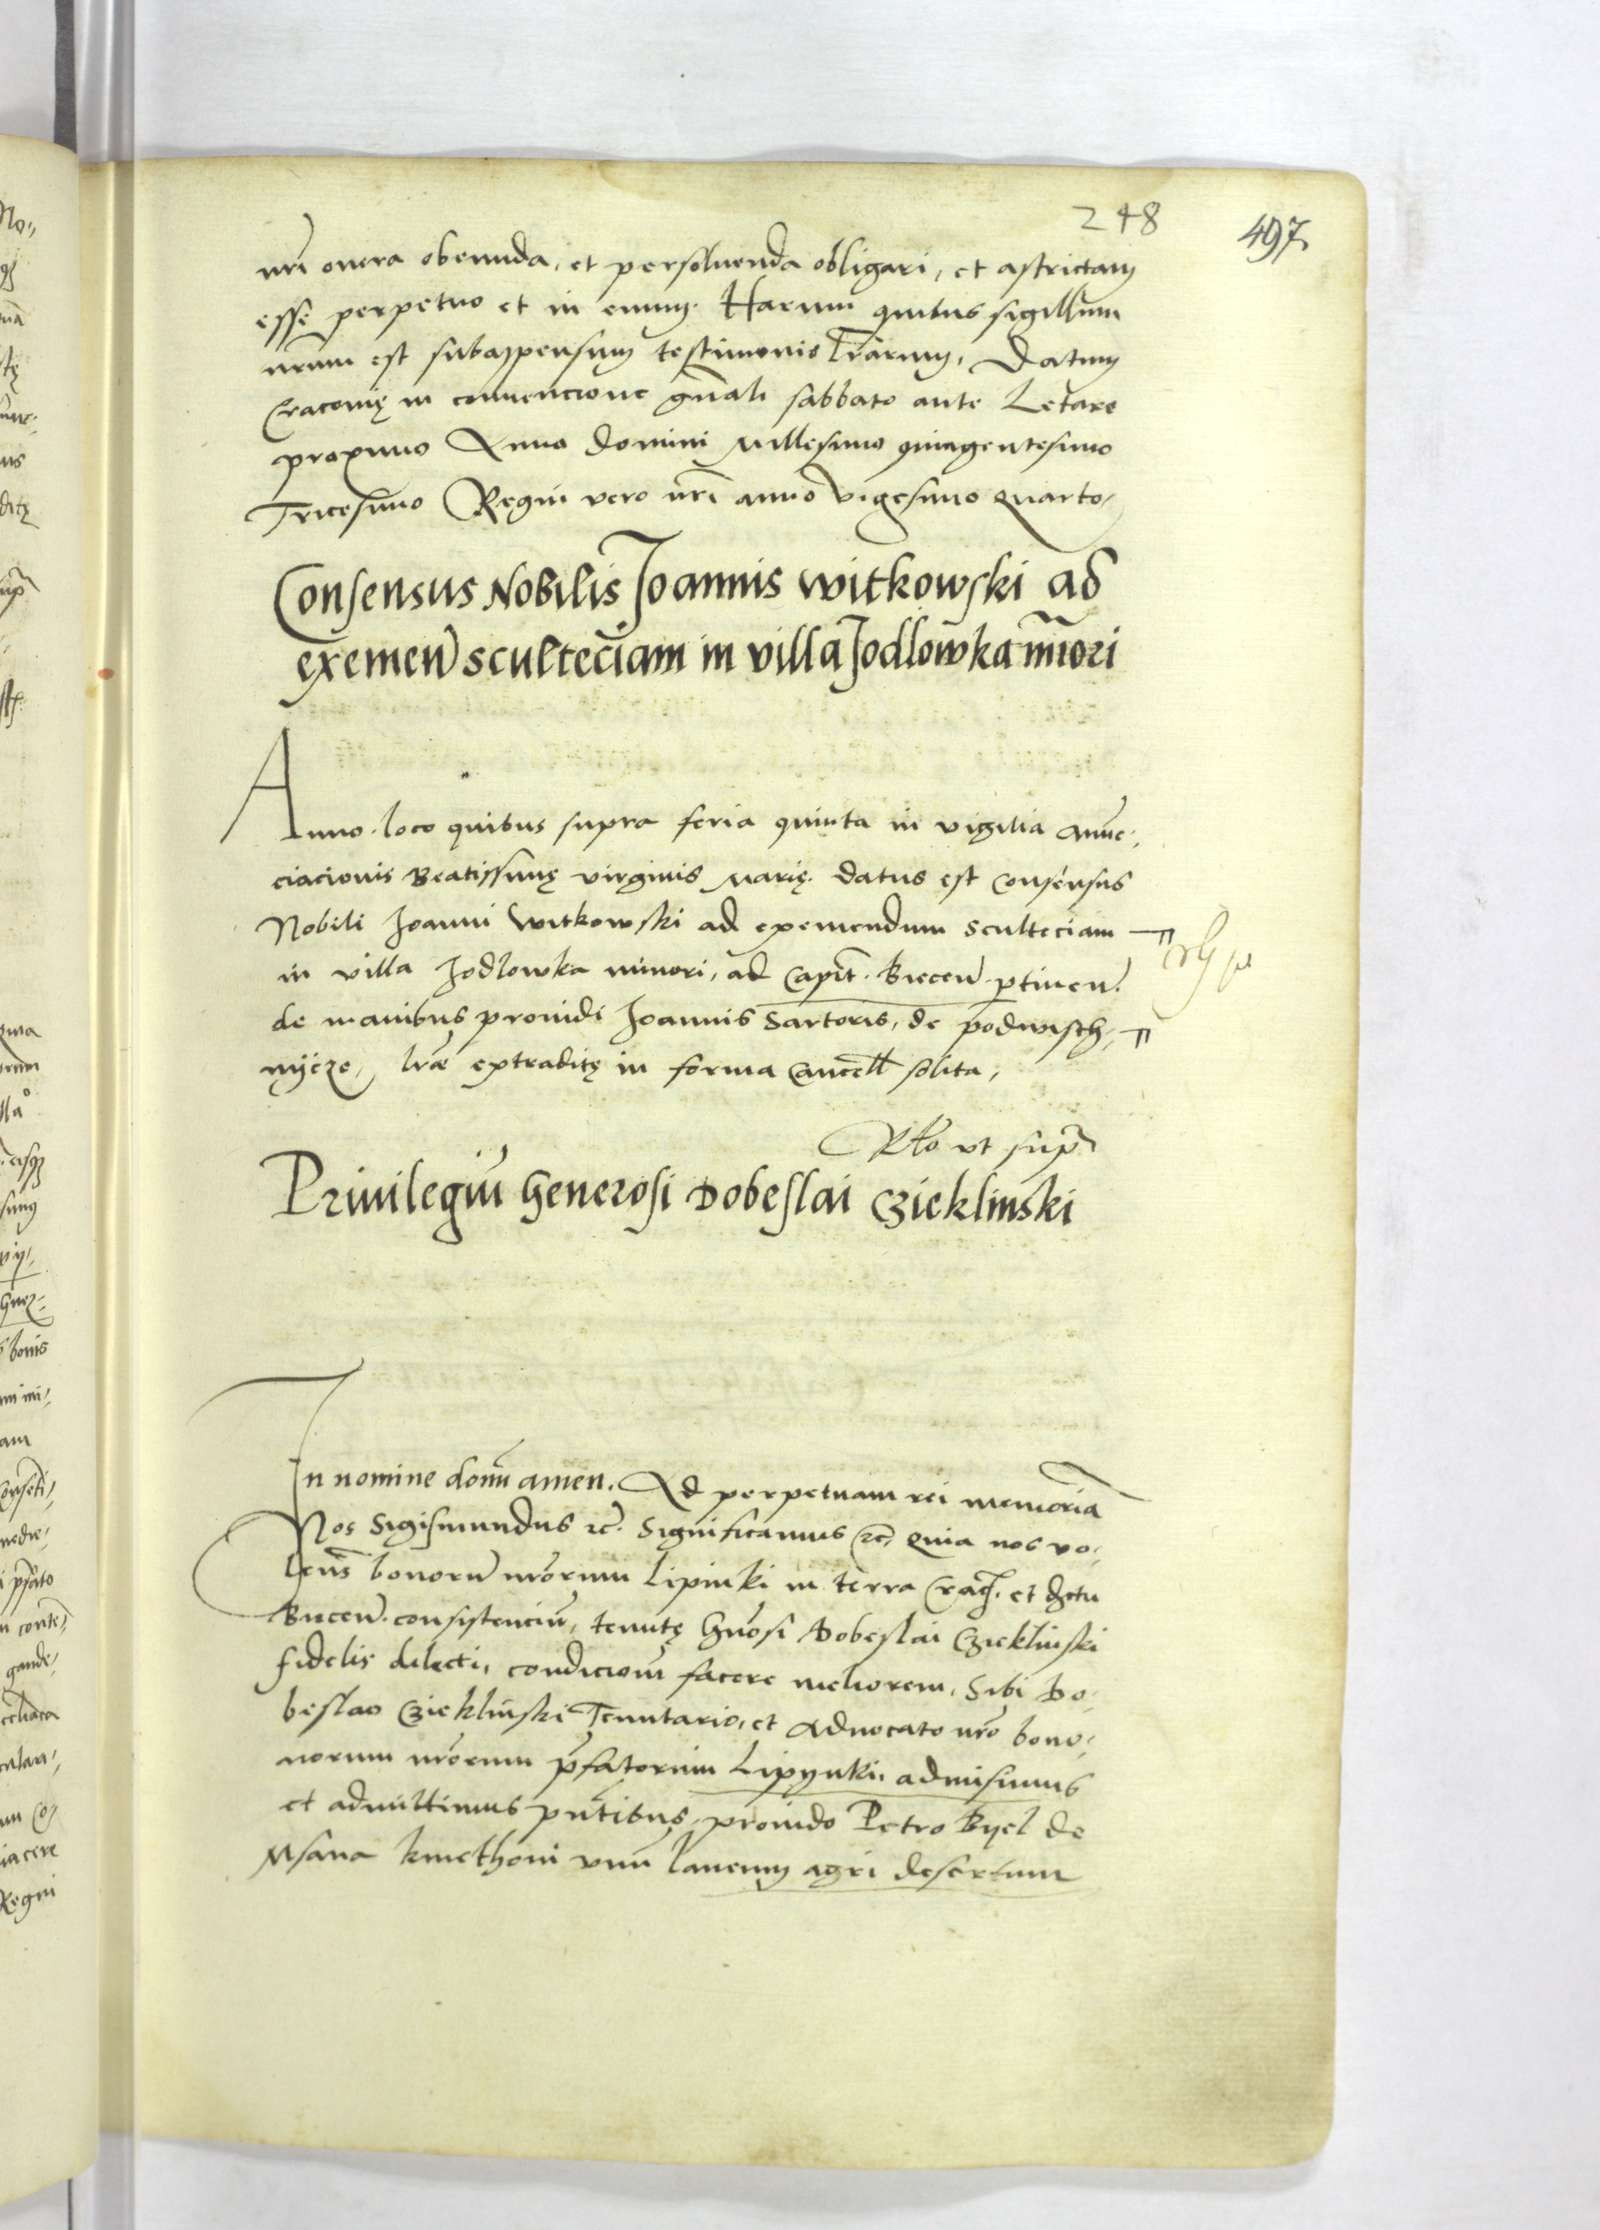 248
497
nri̅ onera obeunda, et persoluenda obligari, et astrictam
esse perpetuo et in euum. Harum quibus sigillum
nrum est subappensum testimonio lr̅arum, Datum
Cracouię in conuencione gn̅ali sabbato ante Letare
proximo Anno Domini Millesimo quingentesimo
Tricesimo Regni vero nri̅ anno vigesimo quarto,
Consensus Nobilis Joannis Witkowski ad
exemen̅ sculteciam in villa Jodlowka mi̅ori
Anno. loco quibus supra feria quinta in vigilia Anu̅c,
ciacionis Beatissimę virginis Marię. datus est consensus
Nobili Joanni Witkowski ad exemendum sculteciam
in villa Jodlowka minori, ad Capit̅. Biecen̅. ptinen̅.
de manibus prouidi Joannis Sartoris, de podwisch,
nyicze, lr̅æ extraditę in forma Cancell̅ solita,
Rl̅o vt supr̅
Priuilegiu̅ Generosi Dobeslai Czieklinski
In nomine domi̅ amen. Ad perpetuam rei memoria̅
Nos Sigismundus rc̅. Significamus rc̅, Quia nos vo,
lens̅ bonoru̅ nro̅rum Lipinki in terra Crac̅. et dc̅tu
Biecen̅. consistenciu̅, tenutę Gn̅osi Dobeslai Czieklinski
fidelis dilecti, condicion̅ facere meliorem, Sibi Do,
beslao Czieklinski Tenutario, et Aduocato nr̅o bono,
norum nr̅orum pr̅fatorum Lipynki, admisimus
et admittimus pn̅tibus, prouido Petro Byel de
Msana kmethoni vnu̅ laneum agri desertum